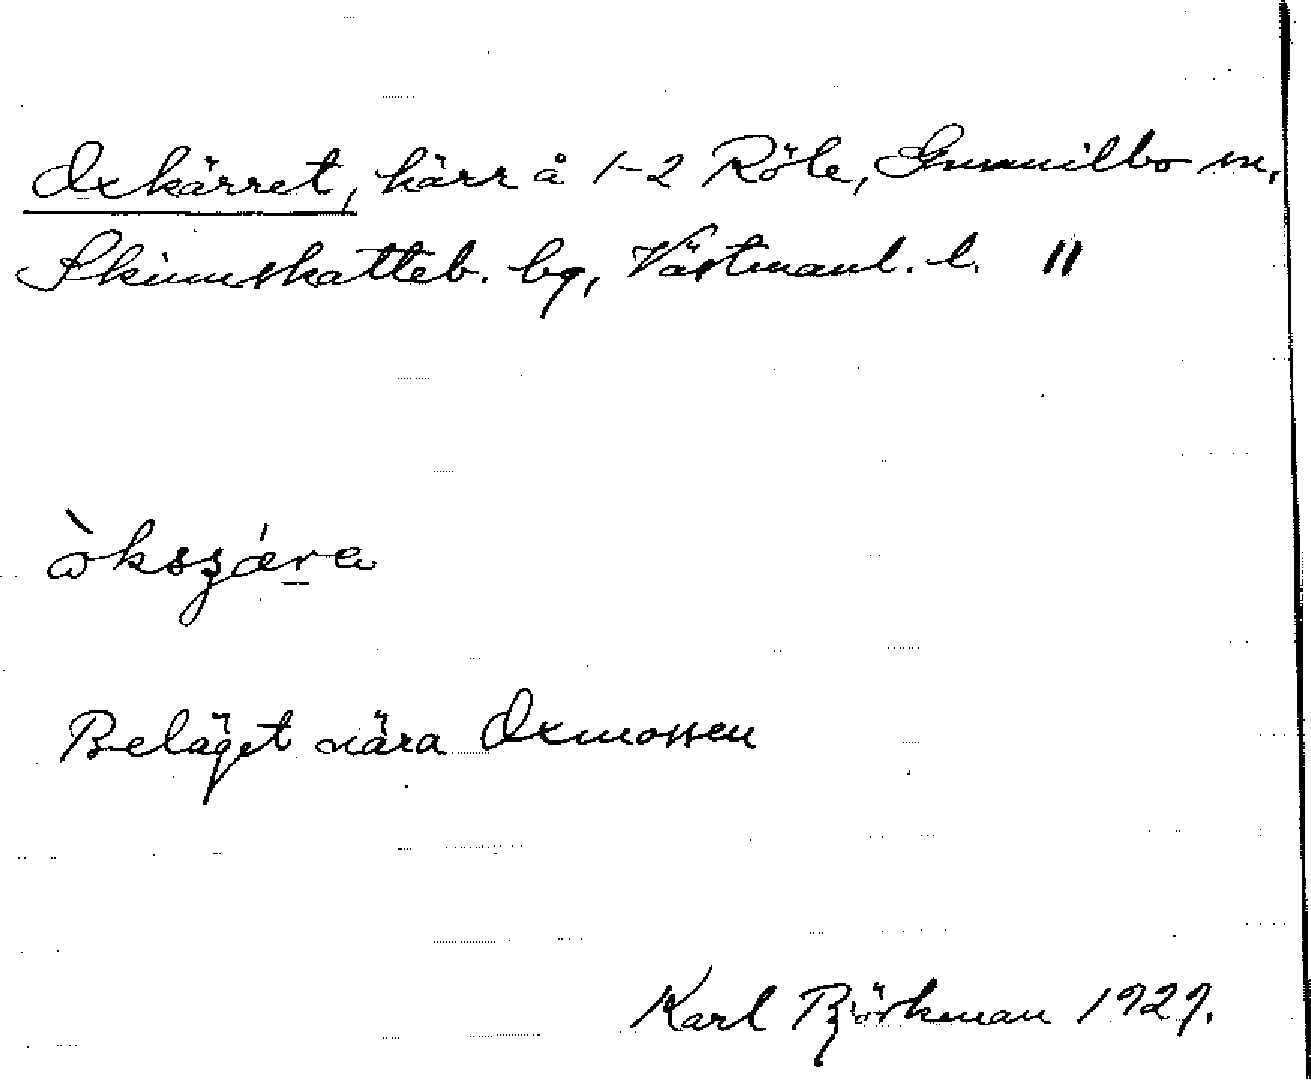 Oxkärret, kärr å 1-2 Röle, Gunnilbo sn,
Skinnskatteb. bg, Västmanl. l. 11
Beläget nära Oxmossen
Karl Björkman 1929.